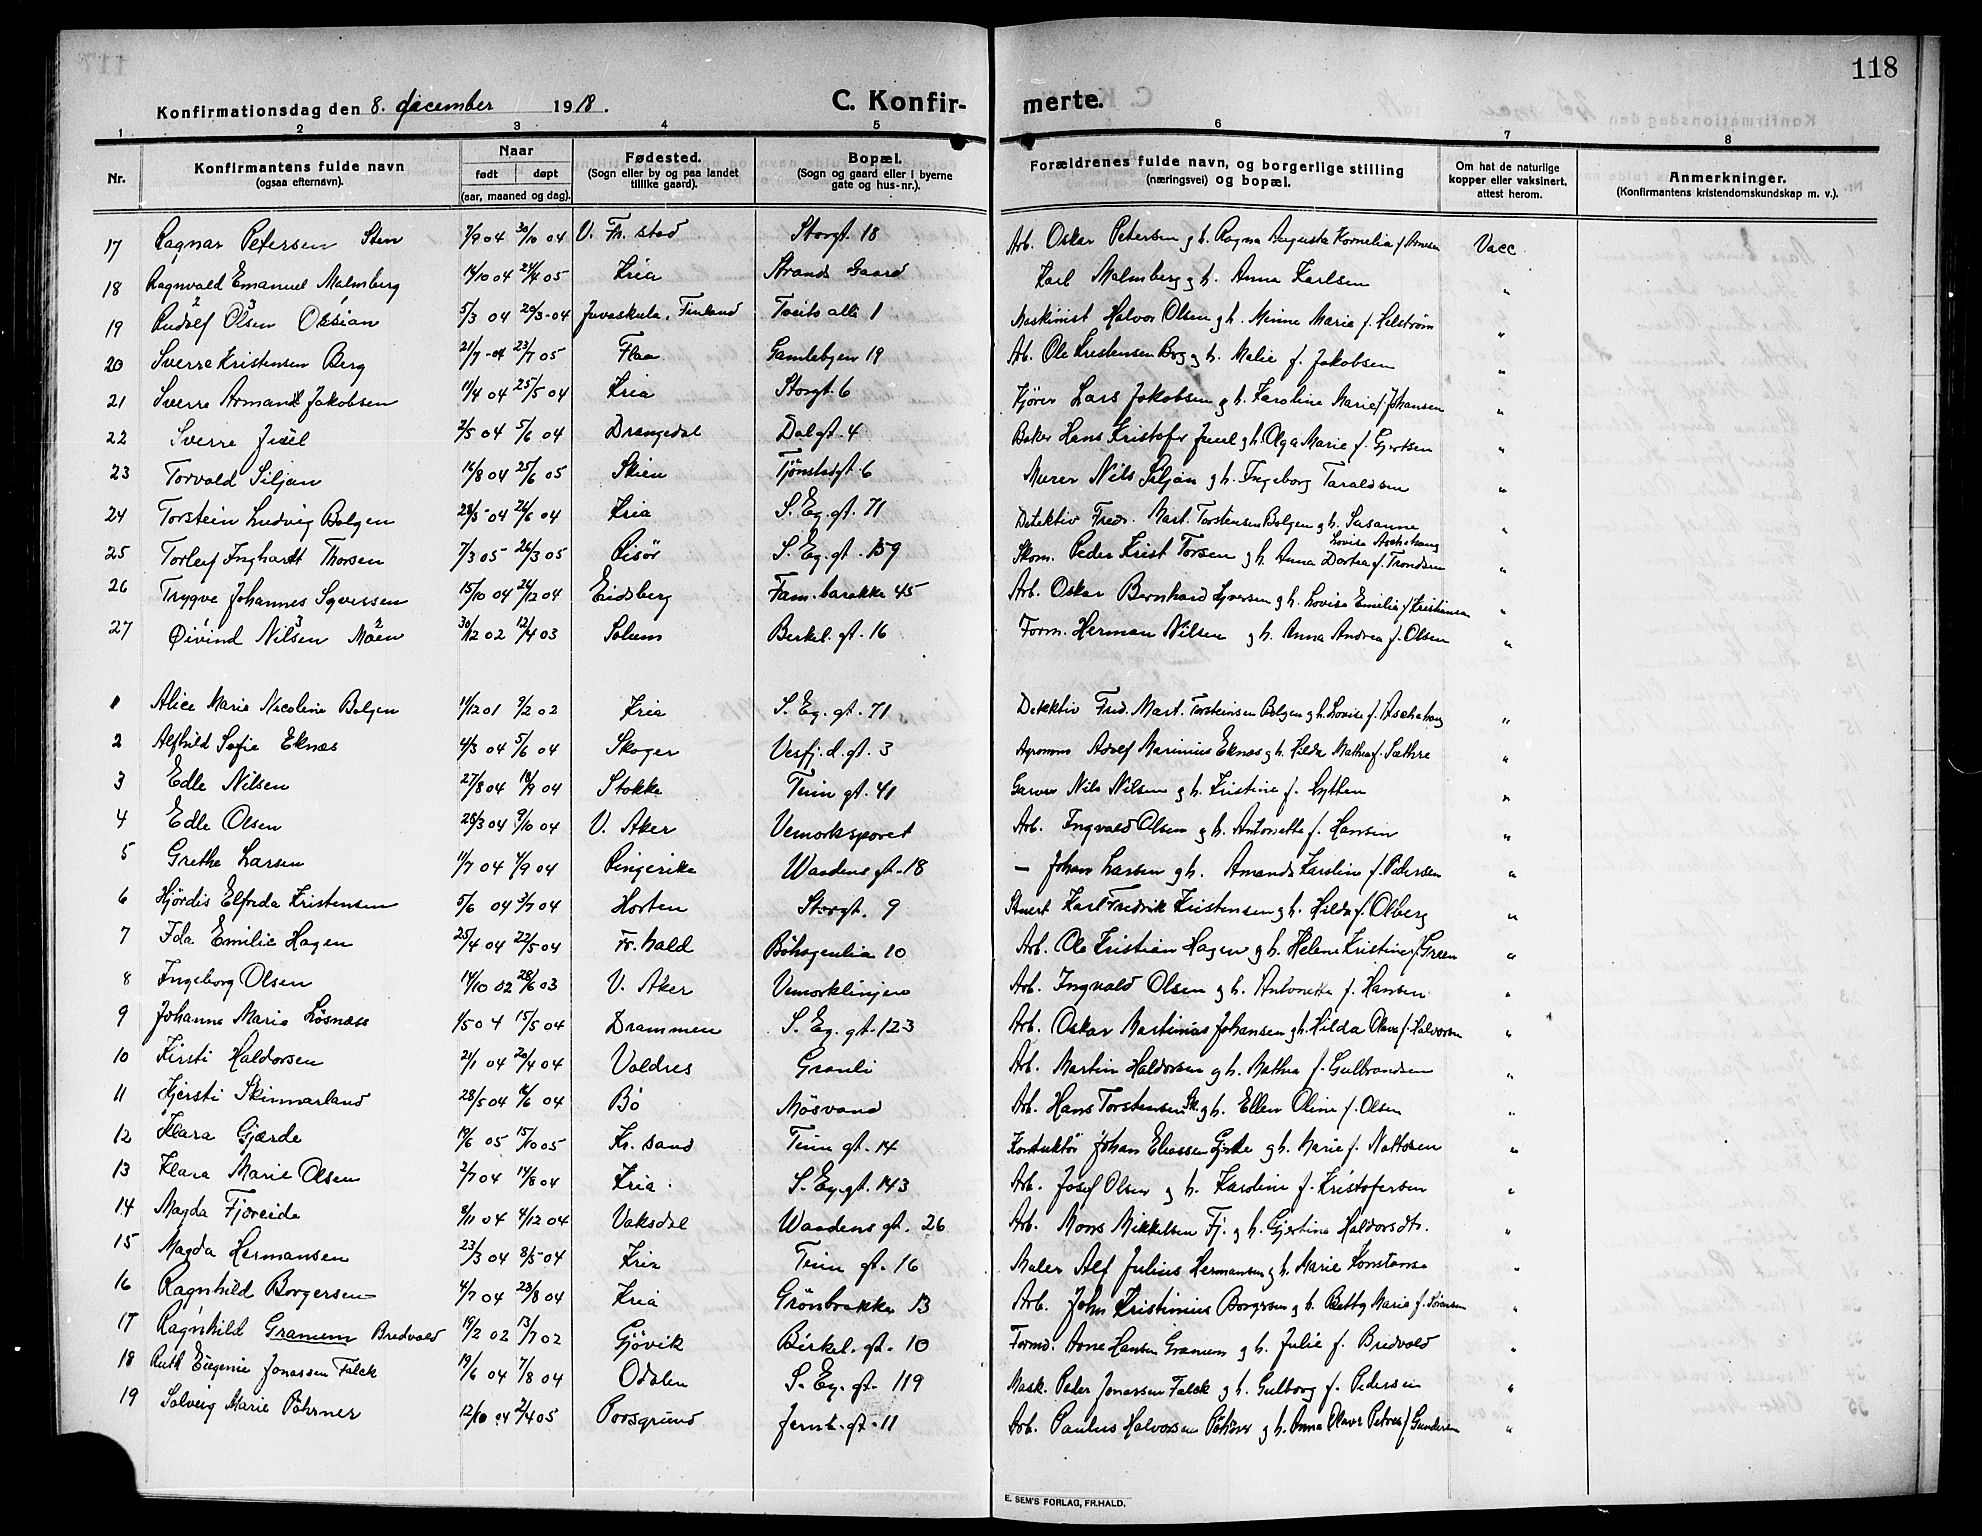 118
Konfirmationsdag den 8. december 1918. C. Konfirmerte.
1 2 3 4 5 6 7 8
Nr. Konfirmantens fulde navn (ogsaa efternavn). Naar født døpt (aar, maaned og dag). Fødested. (Sogn eller by og paa landet tillike gaard). Bopæl. (Sogn og gaard eller i byerne gate og hus-nr.). Forældrenes fulde navn, og borgerlige stilling (næringsvei) og bopæl. Om hat de naturlige kopper eller vaksinert, attest herom. Anmerkninger. (Konfirmantens kristendomskundskap m. v.).
17 Ragnar Petersen Sten 7/9 04 30/10 04 V. Fr. stad Storgt. 18 Arb. Oskar Petersen g h. Ragna Augusta Kornelia f. Vacc
18 Ragnvald Emanuel Malmberg 14/10 04 24/4 05 Kria Strands Gaard Karl Malmberg g h. Anna Karlsen "
19 Rudolf Olsen Ossian 5/3 04 20/3-04 Juvaskula, Finland Tveits alle 1 Maskinist Halvor Olsen g h. Minna Marie f. Helström "
20 Sverre Kristensen Berg 21/7-04 23/7 05 Flaa Gamlebyen 19 Ab. Ole Kristensen Brg g h. Malie f. Jakobsen "
21 Sverre Armand Jakobsen 11/4 04 25/5 04 Kria Storgt. 6 Kjörer Lars Jakobsen g h. Karoline Marie f. Johansen "
22 Sverre Juel 2/5 04 5/6 04 Drangedal Dal gt. 4 Baker Hans Kristofer Juul g h. Olga Marie f. Gjertsen "
23 Torvald Siljan 16/8 04 25/6 05 Skien Tjönstadgt. 6 Murer Nils Siljan g h. Ingeborg Taraldsen "
24 Torstein Ludvig Bolgen 28/5-04 26/6 04 Kria S. Eg. gt. 71 Detektiv Fredr. Mart. Torstensen Bolgen g h. Susanne Lovise Aschehaug "
25 Torleif Inghardt Thorsen 7/3 05 26/3 05 Risör S. Eg. gt. 159 Skom. Peder Krist Torsen g h. Anna Dortea f. Trondsen "
26 Trygve Johannes Syversen 15/10 04 24/12 04 Eidsberg Fam. barakke 45 Arb. Oskar Bernhard Syversen g h. Lovise Emilie f. Kristiansen "
27 Øivind Nilsen Moen 30/12 02 12/4 03 Solum Berkel. gt. 16 Form. Herman Nilsen g h. Anna Andrea f. Olsen "
1 Alice Marie Nicoline Bolgen 11/12 01 9/2 02 Kria S. Eg. gt. 71 Detektiv Fred. Mart. Torsteinsen Bolgen g h. Lovise f. Aschehaug "
2 Alfhild Sofie Eknes 4/3 04 5/6 04 Skoger Vesfj. d. gt. 3 Agronom Adolf Marinius Eknes g h. Hilda Mathea f. Sæthre "
3 Edle Nilsen 27/8 04 18/9 04 Stokke Tinn gt. 41 Garver Nils Nilsen g h. Kristine f. Lytten "
4 Edle Olsen 28/3 04 9/10 04 V. Aker Vemorksporet Arb. Ingvald Olsen g h. Antonette f. Hansen "
5 Grethe Larsen 11/7 04 4/9 04 Ringerike Waadens gt. 18 — Johan Larsen g h. Amanda Karoline f. Pedersen "
6 Hjördis Elfrida Kristensen 5/6 04 3/7 04 Horten Storgt. 9 Stuert Karl Fredrik Kristensen g h. Hilda f. Olberg "
7 Ida Emilie Hagen 25/4 04 22/5 04 Fr. hald Böhagenlia 10 Arb. Ole Kristian Hagen g h. Helene Kristine f. Green "
8 Ingeborg Olsen 14/10 02 28/6 03 V. Aker Vemorklinjen Arb. Ingvald Olsen g h. Antonette f. Hansen "
9 Johanne Marie Lösnæss 1/5 04 15/5 04 Drammen S. Eg. gt. 123 Arb. Oskar Martinius Johansen g h. Hilda Olava f. Halvorsen "
10 Kirsti Haldorsen 21/1 04 20/4 04 Valdres Granli Arb. Martin Haldorsen g h. Mathea f. Gulbrandsen "
11 Kjersti Skinnarland 28/5 04 16/6 04 Bö Mösvand Arb. Hans Torstensen Sk. g h. Ellen Oline f. Olsen "
12 Klara Gjærde 19/6 05 15/10 05 Kr. sand Tinn gt. 14 Konduktör Johan Eliassen Gjærde g h. Marie f. Nattosen "
13 Klara Marie Olsen 2/7 04 14/8 04 Kria S. Eg. gt. 143 Arb. Josef Olsen g h. Karoline f. Kristofersen "
14 Magda Fjoreide 8/11 04 4/12 04 Vaksdal Waadens gt. 26 Arb. Mons Mikkelsen Fj. g h. Gjertine Haldorsdtr. "
15 Magda Hermansen 23/3 04 8/5-04 Kria Tinn gt. 16 Maler Alf Julius Hermansen g h. Marie Konstanse "
16 Ragnhild Borgersen 4/7 04 28/8 04 Kria Grönbrakka 13 Arb. John Kristinius Borgersen g h. Betty Marie f. Sörensen "
17 Ragnhild Granum Bredvold 19/2 02 13/7 02 Gjövik Birkel. gt. 10 Formd. Arne Hansen Granum g h. Julie f. Bredvold "
18 Ruth Eugenie Jonassen Falck 19/6 04 7/8 04 Odalen S. Eg. gt. 119 Mask. Peder Jonassen Falck g h. Gulborg f. Pedersen "
19 Solveig Marie Pöhrner 12/10 04 2/4 05 Porsgrund Jernb. gt. 11 Arb. Paulus Halvorsen g h. Anna Olava Petrea f. Gundersen "
E. SEM'S FORLAG, FR.HALD.